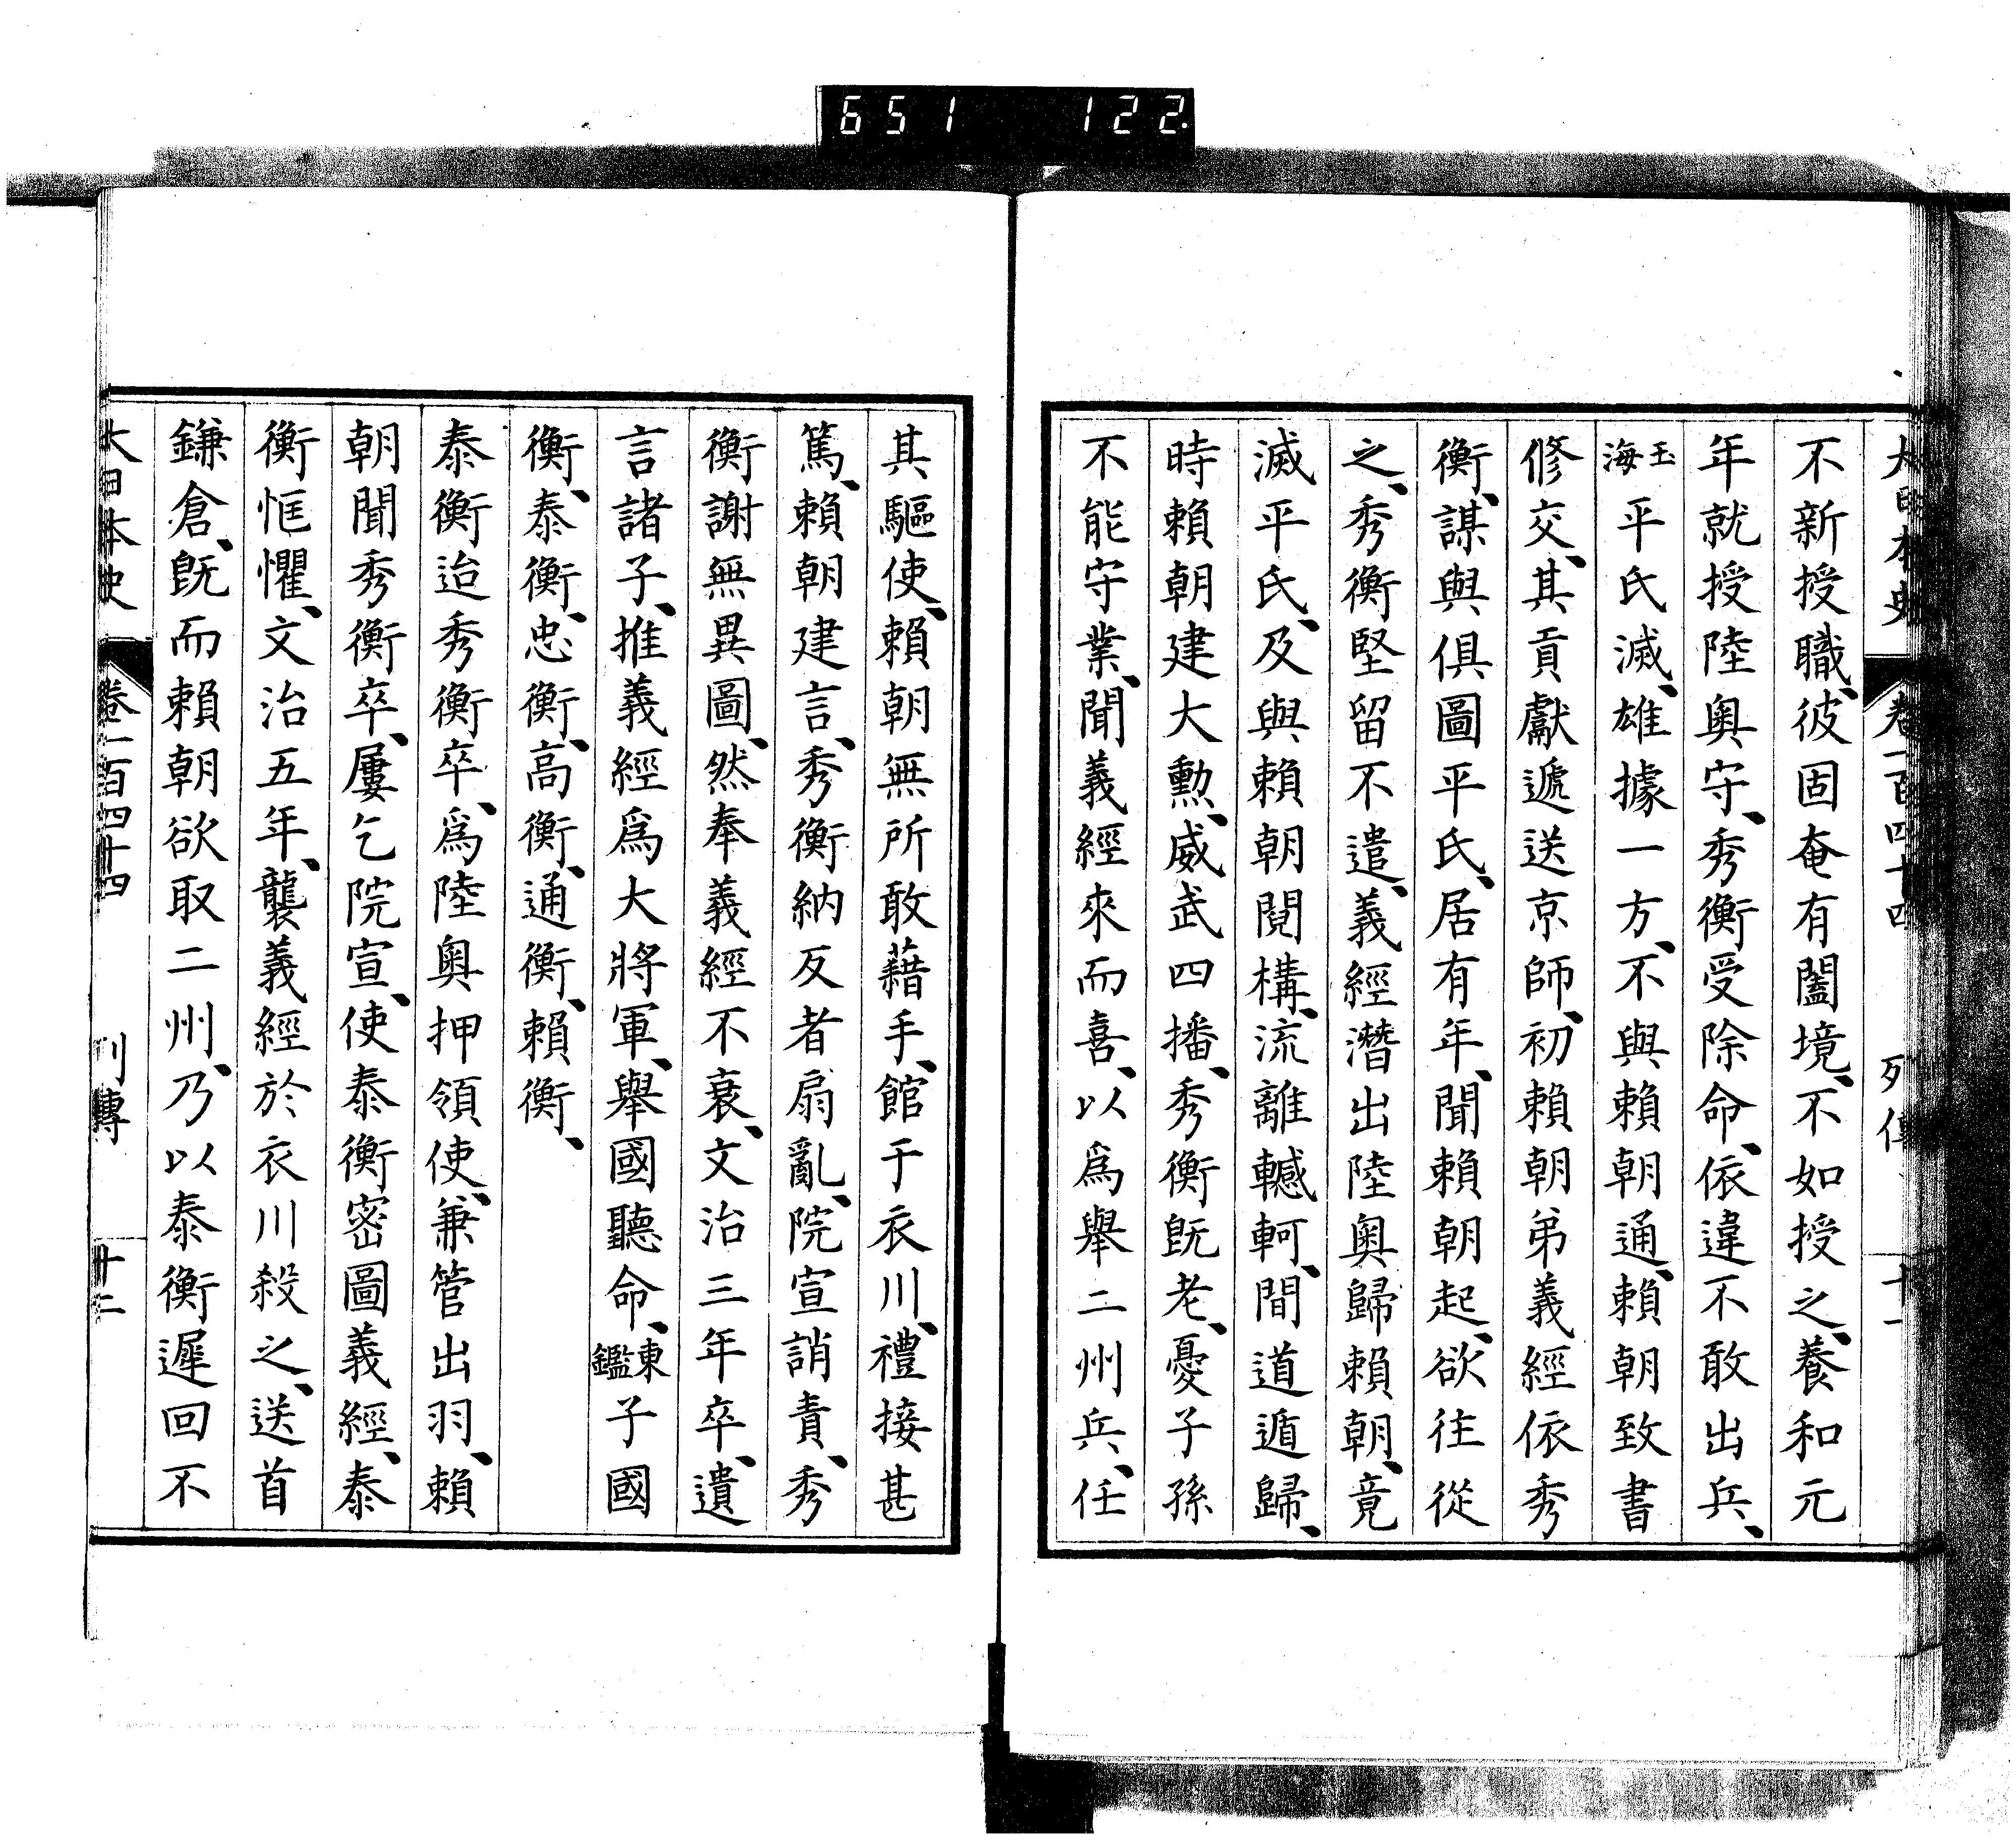 651 122
大日本史 卷二百四十四 列傳 十一
不新授職、彼固奄有闔境、不如授之、養和元
年就授陸奧守、秀衡受除命、依違不敢出兵、
玉海平氏滅、雄據一方、不與賴朝通、賴朝致書
修交、其貢獻遞送京師、初賴朝弟義經依秀
衡、謀與俱圖平氏、居有年、聞賴朝起、欲往從
之、秀衡堅留不遣、義經潛出陸奧歸賴朝、竟
滅平氏、及與賴朝鬩構、流離轗軻、間道遁歸、
時賴朝建大勳、威武四播、秀衡既老、憂子孫
不能守業、聞義經來而喜、以爲舉二州兵、任
其驅使、賴朝無所敢藉手、館于衣川、禮接甚
篤、賴朝建言、秀衡納反者扇亂、院宣誚責、秀
衡謝無異圖、然奉義經不衰、文治三年卒、遺
言諸子、推義經爲大將軍、舉國聽命、東鑑子國
衡、泰衡、忠衡、高衡、通衡、賴衡、
泰衡迨秀衡卒、爲陸奧押領使、兼管出羽、賴
朝聞秀衡卒、屢乞院宣、使泰衡密圖義經、泰
衡恇懼、文治五年、襲義經於衣川殺之、送首
鎌倉、既而賴朝欲取二州、乃以泰衡遲回不
大日本史 卷二百四十四 列傳 十二